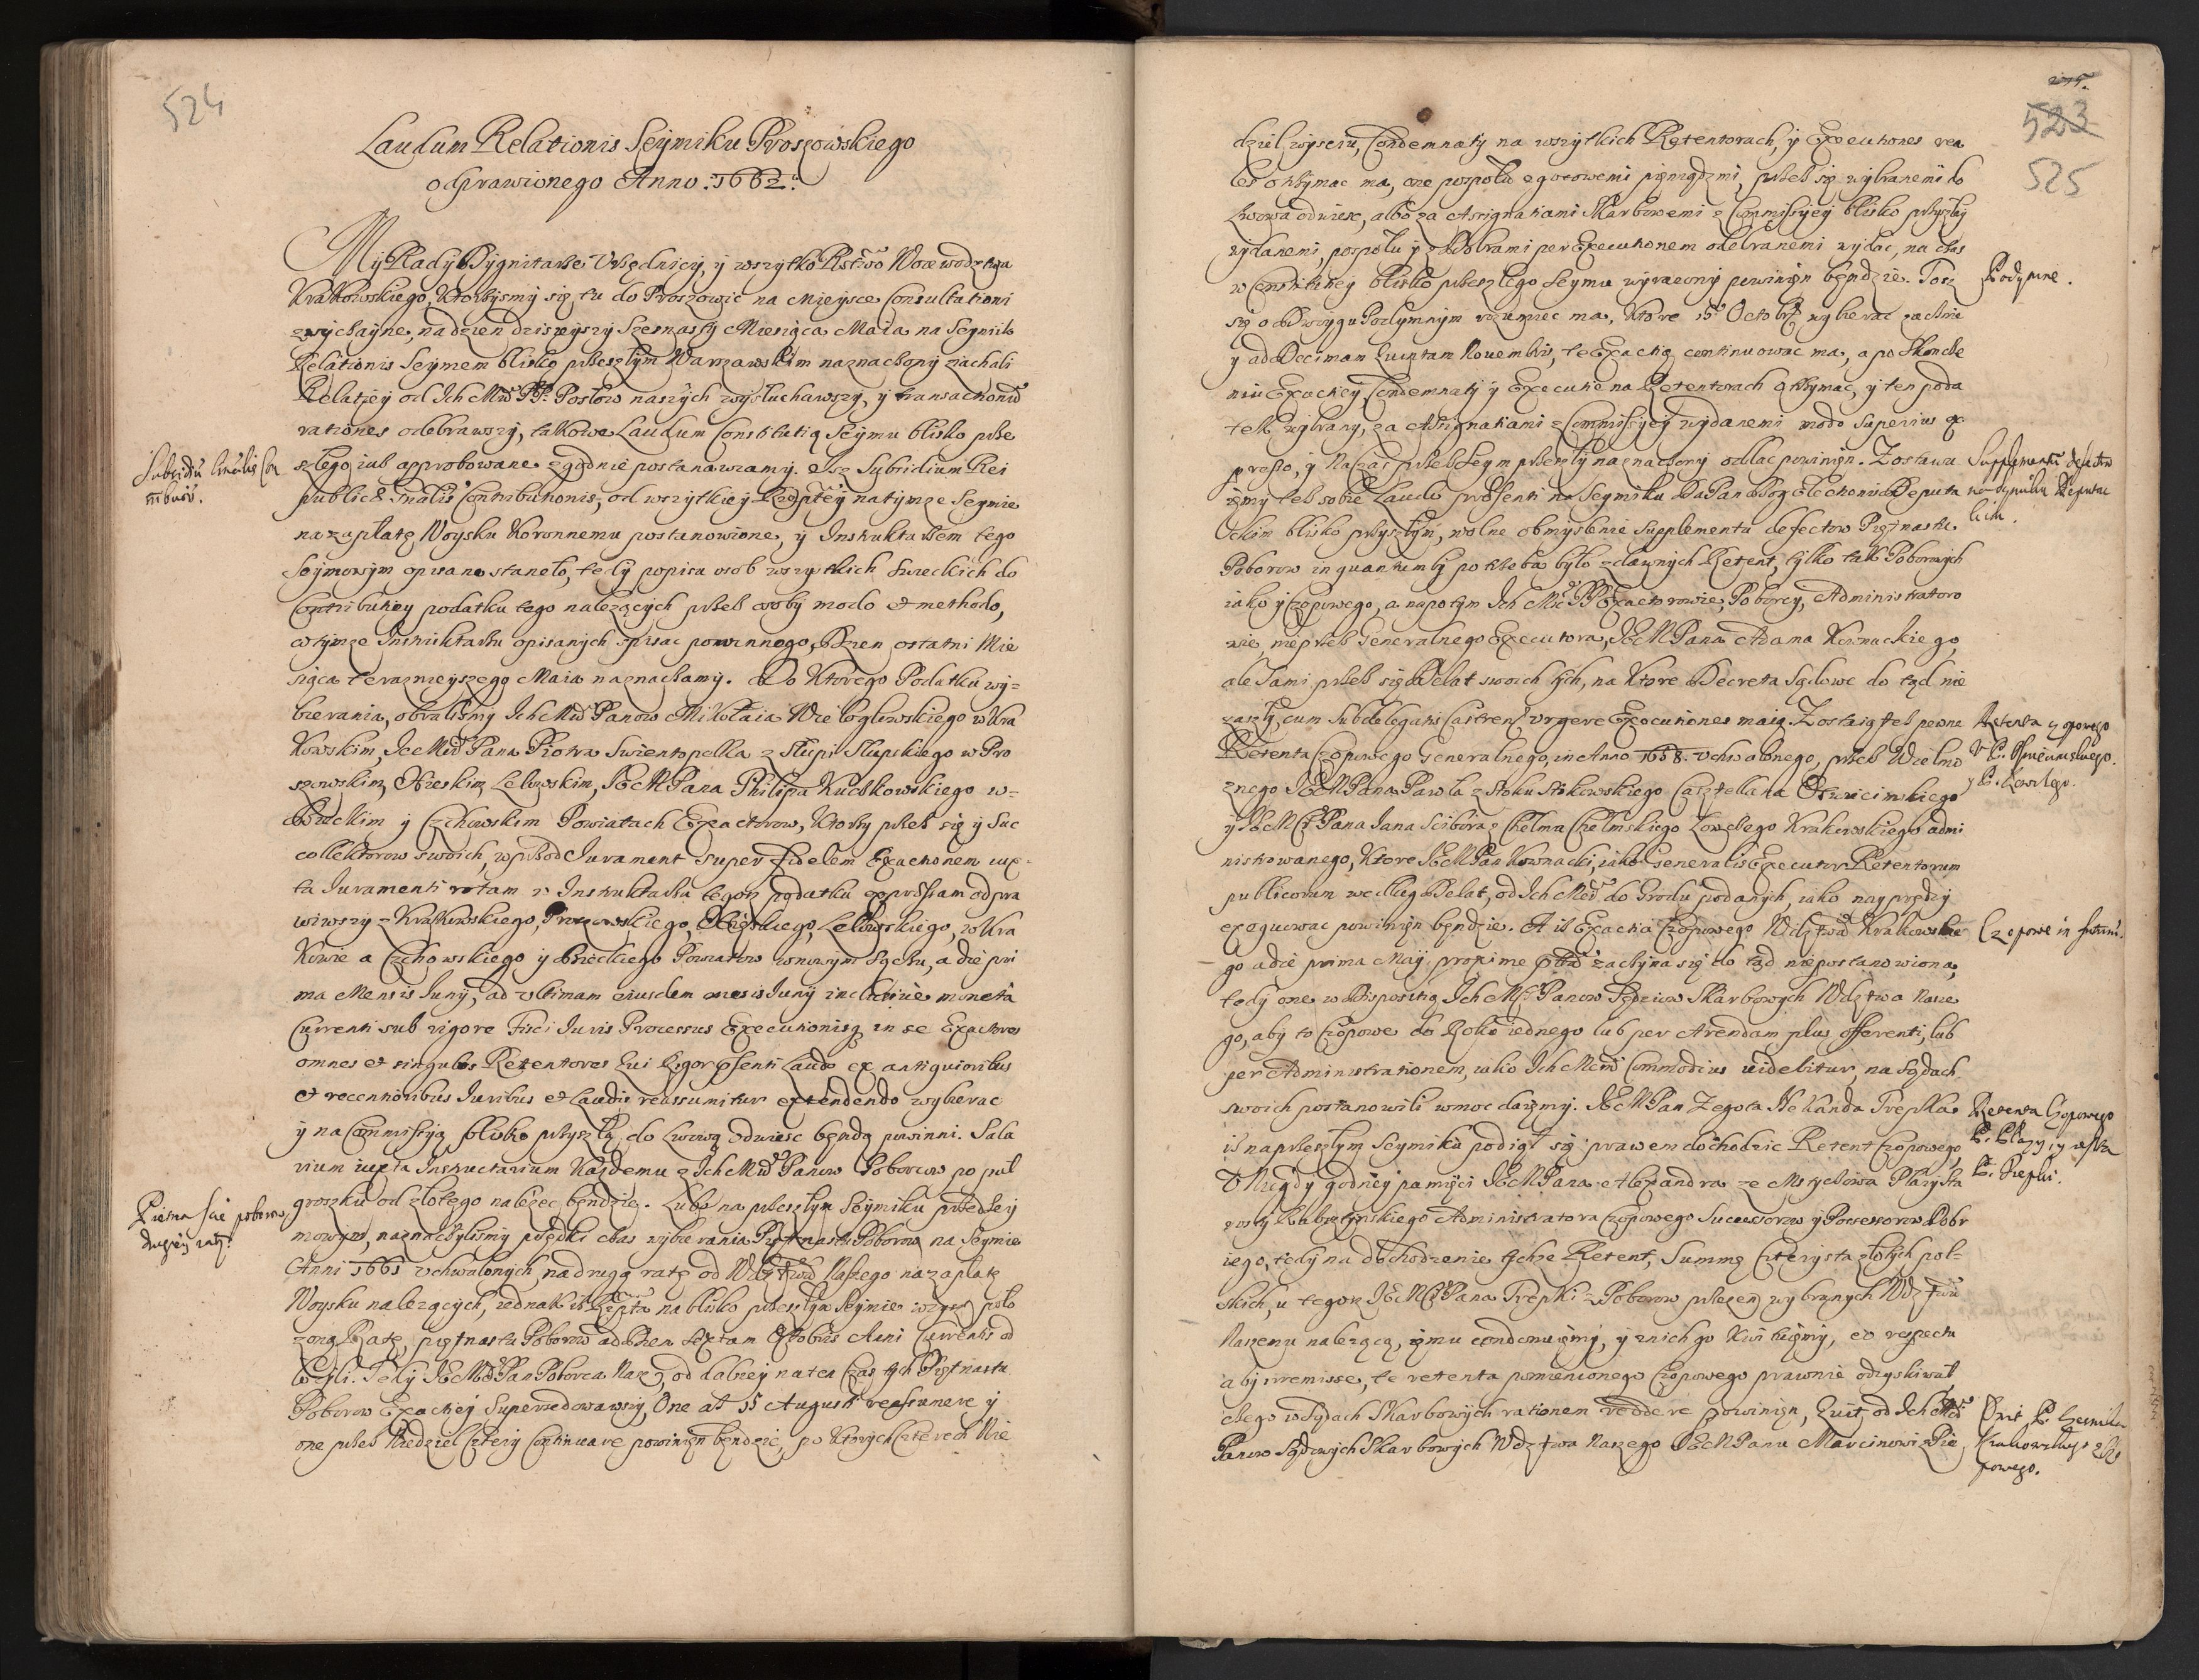 524
Laudum Relationis Seymiku Proszowskiego
odprawionego Anno. 1662.
My Rady Dygnitarze Vrzędnicy, y wszytko Rstwo Woiewodztwa
Krakowskiego, Ktorzysmy się tu do Proszowic na Mieysce Consultationi
zwyczayne, na dzien dzisieyszy Szesnasty Miesiąca Maia na Seymik
Relationis Seymem blisko przeszłym Warszawskim naznaczony ziachali
Relatiey od Ich Mciow PP. Posłow naszych wysłuchawszy, y transactionis
rationes odebrawszy, takowe Laudum Constitutią Seymu blisko prze
szłego iusz approbowane zgodnie postanawiamy. Isz Subsidium Rei
publicae Gnalis Contributionis, od wszytkiey Rzeptey na tymze Seymie
na zapłatę Woysku Koronnemu postanowione, y Instruktarzem tego
Seymowym opisane staneło, tedy popisu osob wszytkich swieckich do
Contributiey podatku tego nalezących przez osoby modo et methodo,
w tymze Instruktarzu opisanych spisac powinnego, Dzien ostatni Mie
siąca teraznieyszego Maia naznaczamy. Do Ktorego Podatku wy=
bierania, obralismy Ich Mciow Panow Mikołaia Wielogłowskiego w Kra
kowskim, Je Mci Pana Piotra Swientopełka z Słupi Słupskiego w Pro
szowskim, Xiezkim, Lelowskim, JE M Pana Philipa Kuczkowskiego w=
Bieckim y Czchowskim Powiatach Exactorow, Ktorzy przez się y Suc
collektorow swoich, wprzod Jurament super fidelem Exactionem iux=
ta Juramenti rotam w Instruktarzu tegosz podatku expressam odpra
wiwszy z Krakowskiego, Proszowskiego, Xięskiego, Lelowskiego, w Kra
kowie a Czchowskiego y Bieckiego Powiatow w nowym Sączu, a die pri
ma Mensis Juny, ad vltimam eiusdem mesis Juny inclusiue moneta
Currenti sub rigore Fisci Juris Processus Executionisq in se Exactores
omnes et singulos Retentores Qui Rigor psenti Laudo ex antiquioribus
et recentioribus Juribus et Laudis reassumitur extendendo wybierac
y na Commissyą blisko przyszłą do Lwowa odwiesc będą powinni. Sala
rium iuxta Instructarium Kazdemu z Ich Mciow Panow Poborcow po puł
groszku od złotego nalezec będzie. Lubo na przeszłym Seymiku przedsey
mowym, naznaczylismy prędki czas wybierania Piętnastu Poborow na Seymie
Anni 1661 vchwalonych, na drugą ratę od Wdztwa Naszego na zapłatę
Woysku nalezących, iednak isz Rzepta na blisko przeszłym Seymie wzgęm poło
zoną Ratę, piętnastu Poborow ad Diem sextam Octobris Anni Currentis od
łozyli. Tedy JE Mci Pan Poborca Nasz, od dalszey na ten czas tych Piętnastu
Poborow Exactiey Supersedowawszy, One at 15 Augusti reassumere y
one przez Niedziel cztery continuare powinien będzie, po Ktorych czterech Nie
Subsidiu Gnalis Con
tribunis.
Piętna scie poborow
drugiey raty.
523
525
dziel wysciu, Condemnaty na wszytkich Retentorach, y Executiones rea
les otrzymac ma, one pospołu z gotowemi pięniądzmi, przez się wybranemi do
Lwowa odwiesc, albo za Assignatiami Skarbowemi z Commissyey blisko przyszłey
wydanemi, pospołu y z Dobrami per Executionem odebranemi wydac, na czas
w Constitucyey blisko przeszłego Seymu wyrazony powinien będzie. Tosz
się o Dwoygu Podymnym rozumiec ma, Ktore 15 Octobr wybierac zacznie
y ad Decimam Quintam Nouembris, te Exactią continuowac ma, a po skoncze
niu Exactiey, Condemnaty y Executie na Retentorach otrzymac, y ten poda
tek wybrany, za Assignatiami z Commissyey wydanemi modo superius ex
presso, y na czas przez Seym przeszły naznaczony oddac powinien. Zostawu
iemy tesz sobie Laudo prdssenti na Seymiku Da Pan Bog Electionis Deputa
ckim blisko przyszłym, wolne obmyslenie Supplementu defectow Piętnastu
Poborow in quantum by potrzeba było z dawnych Retent, tylko tak Poborowych
iako y Czopowego, a napotym Ich Mciow PP Exactorowie, Poborcy, Administratoro
wie, nie przez Generalnego Executora, JE M Pana Adama Kownackiego,
ale sami przez się Delat swoich tych, na Ktore Decreta Sądowe do tąd nie
zaszły, cum Subdelegatis Castrens. vrgere Executiones maią. Zostaią tesz pewne
Retenta Czopowego Generalnego, in Anno 1658. vchwalonego, przez Wielmo
znego JE M Pana Pawła z Stoku Stokowskiego Casztellana Oswiecimskiego
y JE M Pana Jana Scibora z Chełma Chełmskiego Łowczego Krakowskiego admi
nistrowanego, Ktore JE M Pan Kownacki, iako Generalis Executor Retentorum
publicorum według Delat, od Ich Mciow do Grodu podanych, iako nayprędzey
exequowac powinien będzie. A isz Exactia Czopowego Wdztwa Krakowskie
go a die prima Maij proxime ptis zaczyna się do tąd niepostanowiona,
tedy one w Dispositią Ich Mciow Panow Sędziow Skarbowych Wdztwa Nasze
go, aby to Czopowe do Roku iednego lub per Arendam plus offerenti, lub
per Administrationem, iako Ich Mciom Commodius uidebitur, na Sądach
swoich postanowili w moc daięmy. JE M Pan Zegota Nekanda Trepka
isz na przeszłym Seymiku podiął się prawem dochodzic Retent Czopowego,
v Nigdy godney pamięci JE M Pana Alexandra ze Mstyczowa Płazy Sta
rosty Rabsztynskiego Administratora Czopowego Successorow y Possessorow Dobr
iego, tedy na dochodzenie tychze Retent, Summę czterysta złotych pol=
skich, u tegosz JE M Pana Trepki z Poborow przezen wybranych Wdztwu
Naszemu nalezącą, iemu condonuięmy, y z nich go Kwituięmy, eo respectu
aby irremisse, te retenta pomienionego Czopowego prawnie odzyskiwał
czego w Sądach Skarbowych rationem reddere powinien, Quit, od Ich Mciow
Panow Sądowych Skarbowych Wdztwa Naszego JE M Panu Marcinowi z Pie
Podymne.
Supplementu defectow
na Seymiku Deputac
kim.
Retenta czopowego
v P. Oswiecimskiego.
y P. Łowczego.
Czopowe in futuru.
Retenta Czopowego
P. Płazy
P. Trepki.
Qwit P.
Krakowskiego z Czo
powego.